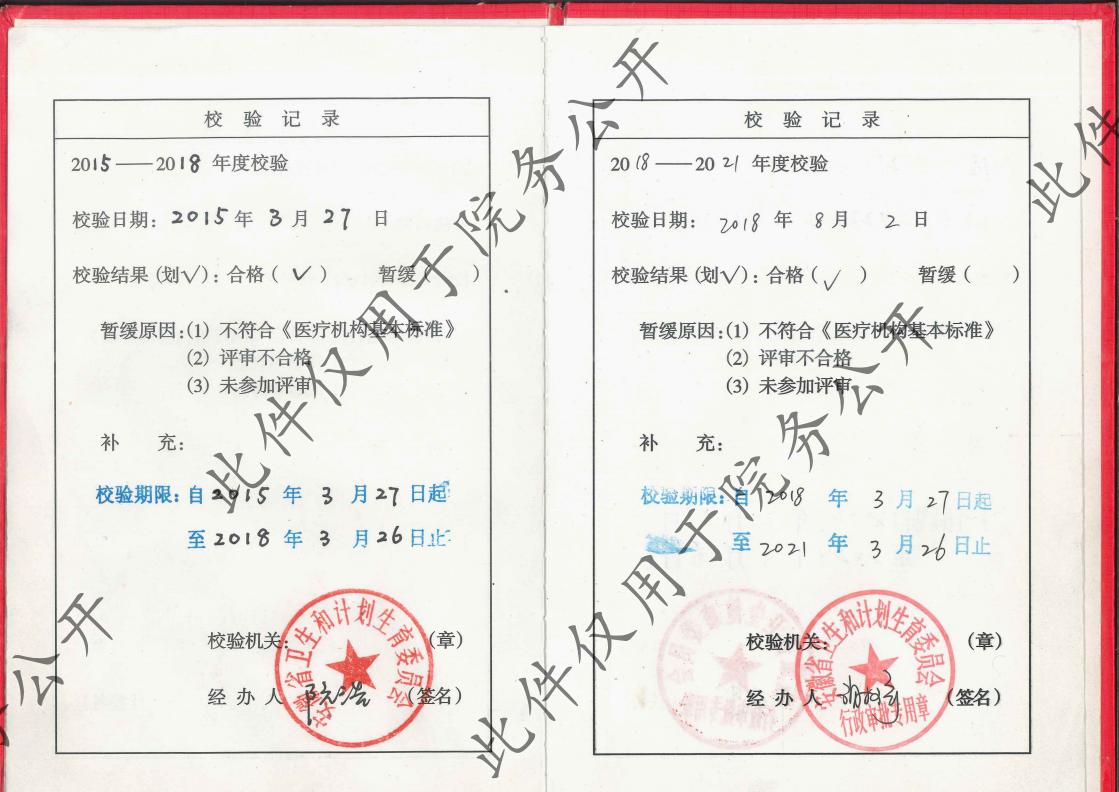 校验记录
2015——2018 年度校验
校验日期: 2015 年 3 月 27 日
校验结果 (划√): 合格 ( ✓ ) 暂缓 ( )
暂缓原因: (1) 不符合《医疗机构基本标准》
(2) 评审不合格
(3) 未参加评审
补 充:
校验期限: 自 2015 年 3 月 27 日起
至 2018 年 3 月 26 日止
校验机关: (章)
经办人 (签名)
安徽省卫生和计划生育委员会
校验记录
2018——2021 年度校验
校验日期: 2018 年 8 月 2 日
校验结果 (划√): 合格 ( ✓ ) 暂缓 ( )
暂缓原因: (1) 不符合《医疗机构基本标准》
(2) 评审不合格
(3) 未参加评审
补 充:
校验期限: 自 2018 年 3 月 27 日起
至 2021 年 3 月 26 日止
校验机关: (章)
经办人 (签名)
安徽省卫生和计划生育委员会
行政审批专用章
此件仅用于院务公开
此件仅用于院务公开
此件
公开